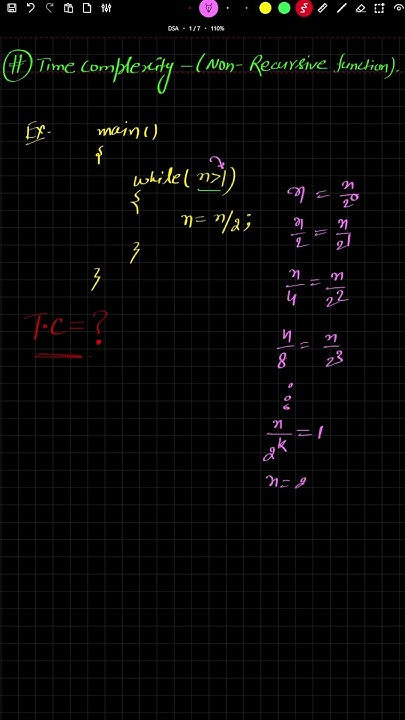 DSA • 1 / 7 • 110%
(#) Time Complexity - (Non- Recursive function).
Ex.
main()
{
while( n>1)
{
n= n/2;
}
}
T.C = ?
n = n/2^0
n/2 = n/2^1
n/4 = n/2^2
n/8 = n/2^3
n/2^k = 1
n =